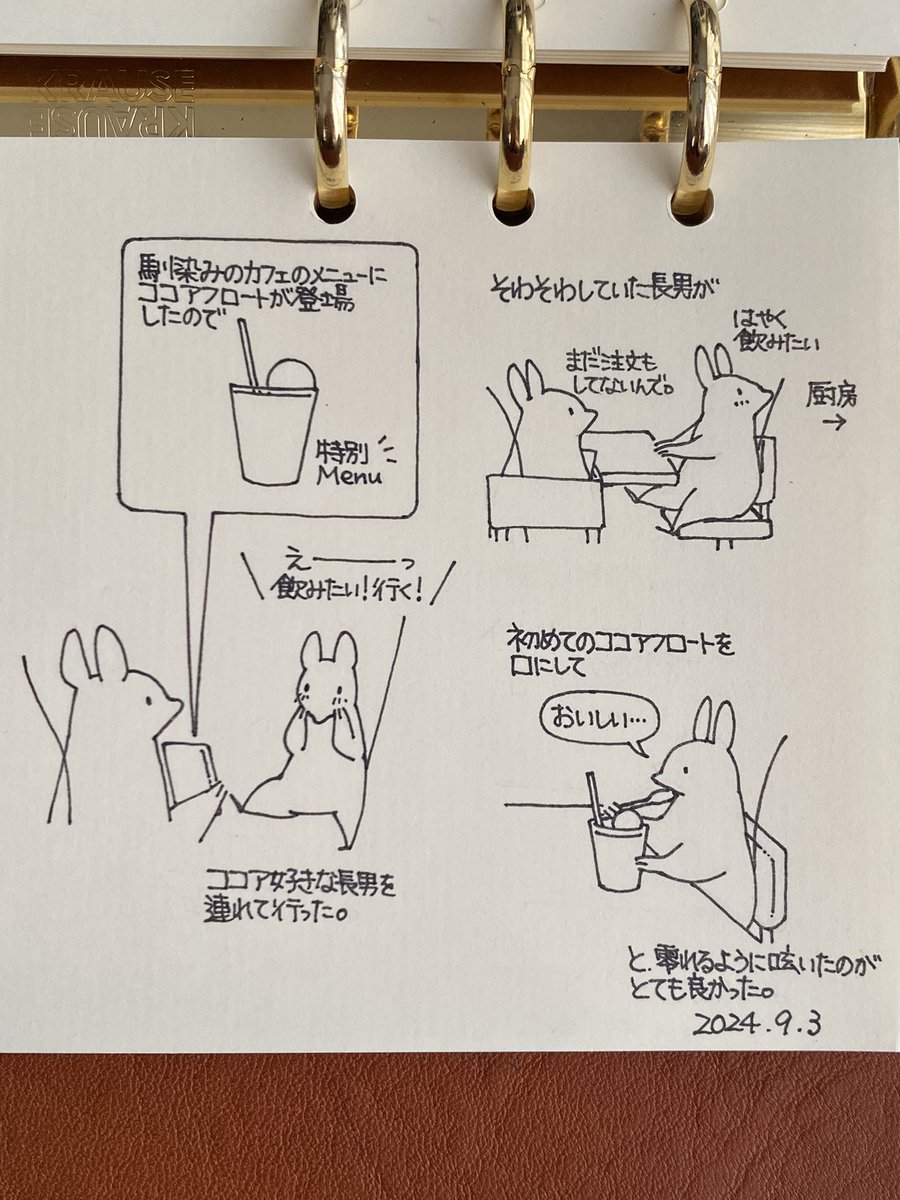 KRAUSE
KRAUSE
馴染みのカフェのメニューに
ココアフロートが登場
したので
特別
Menu
えーーーっ
飲みたい！行く！
ココア好きな長男を
連れて行った。
そわそわしていた長男が
はやく
飲みたい
まだ注文も
してないんで。
厨房
→
初めてのココアフロートを
口にして
おいしい…
と、零れるように呟いたのが
とても良かった。
2024.9.3